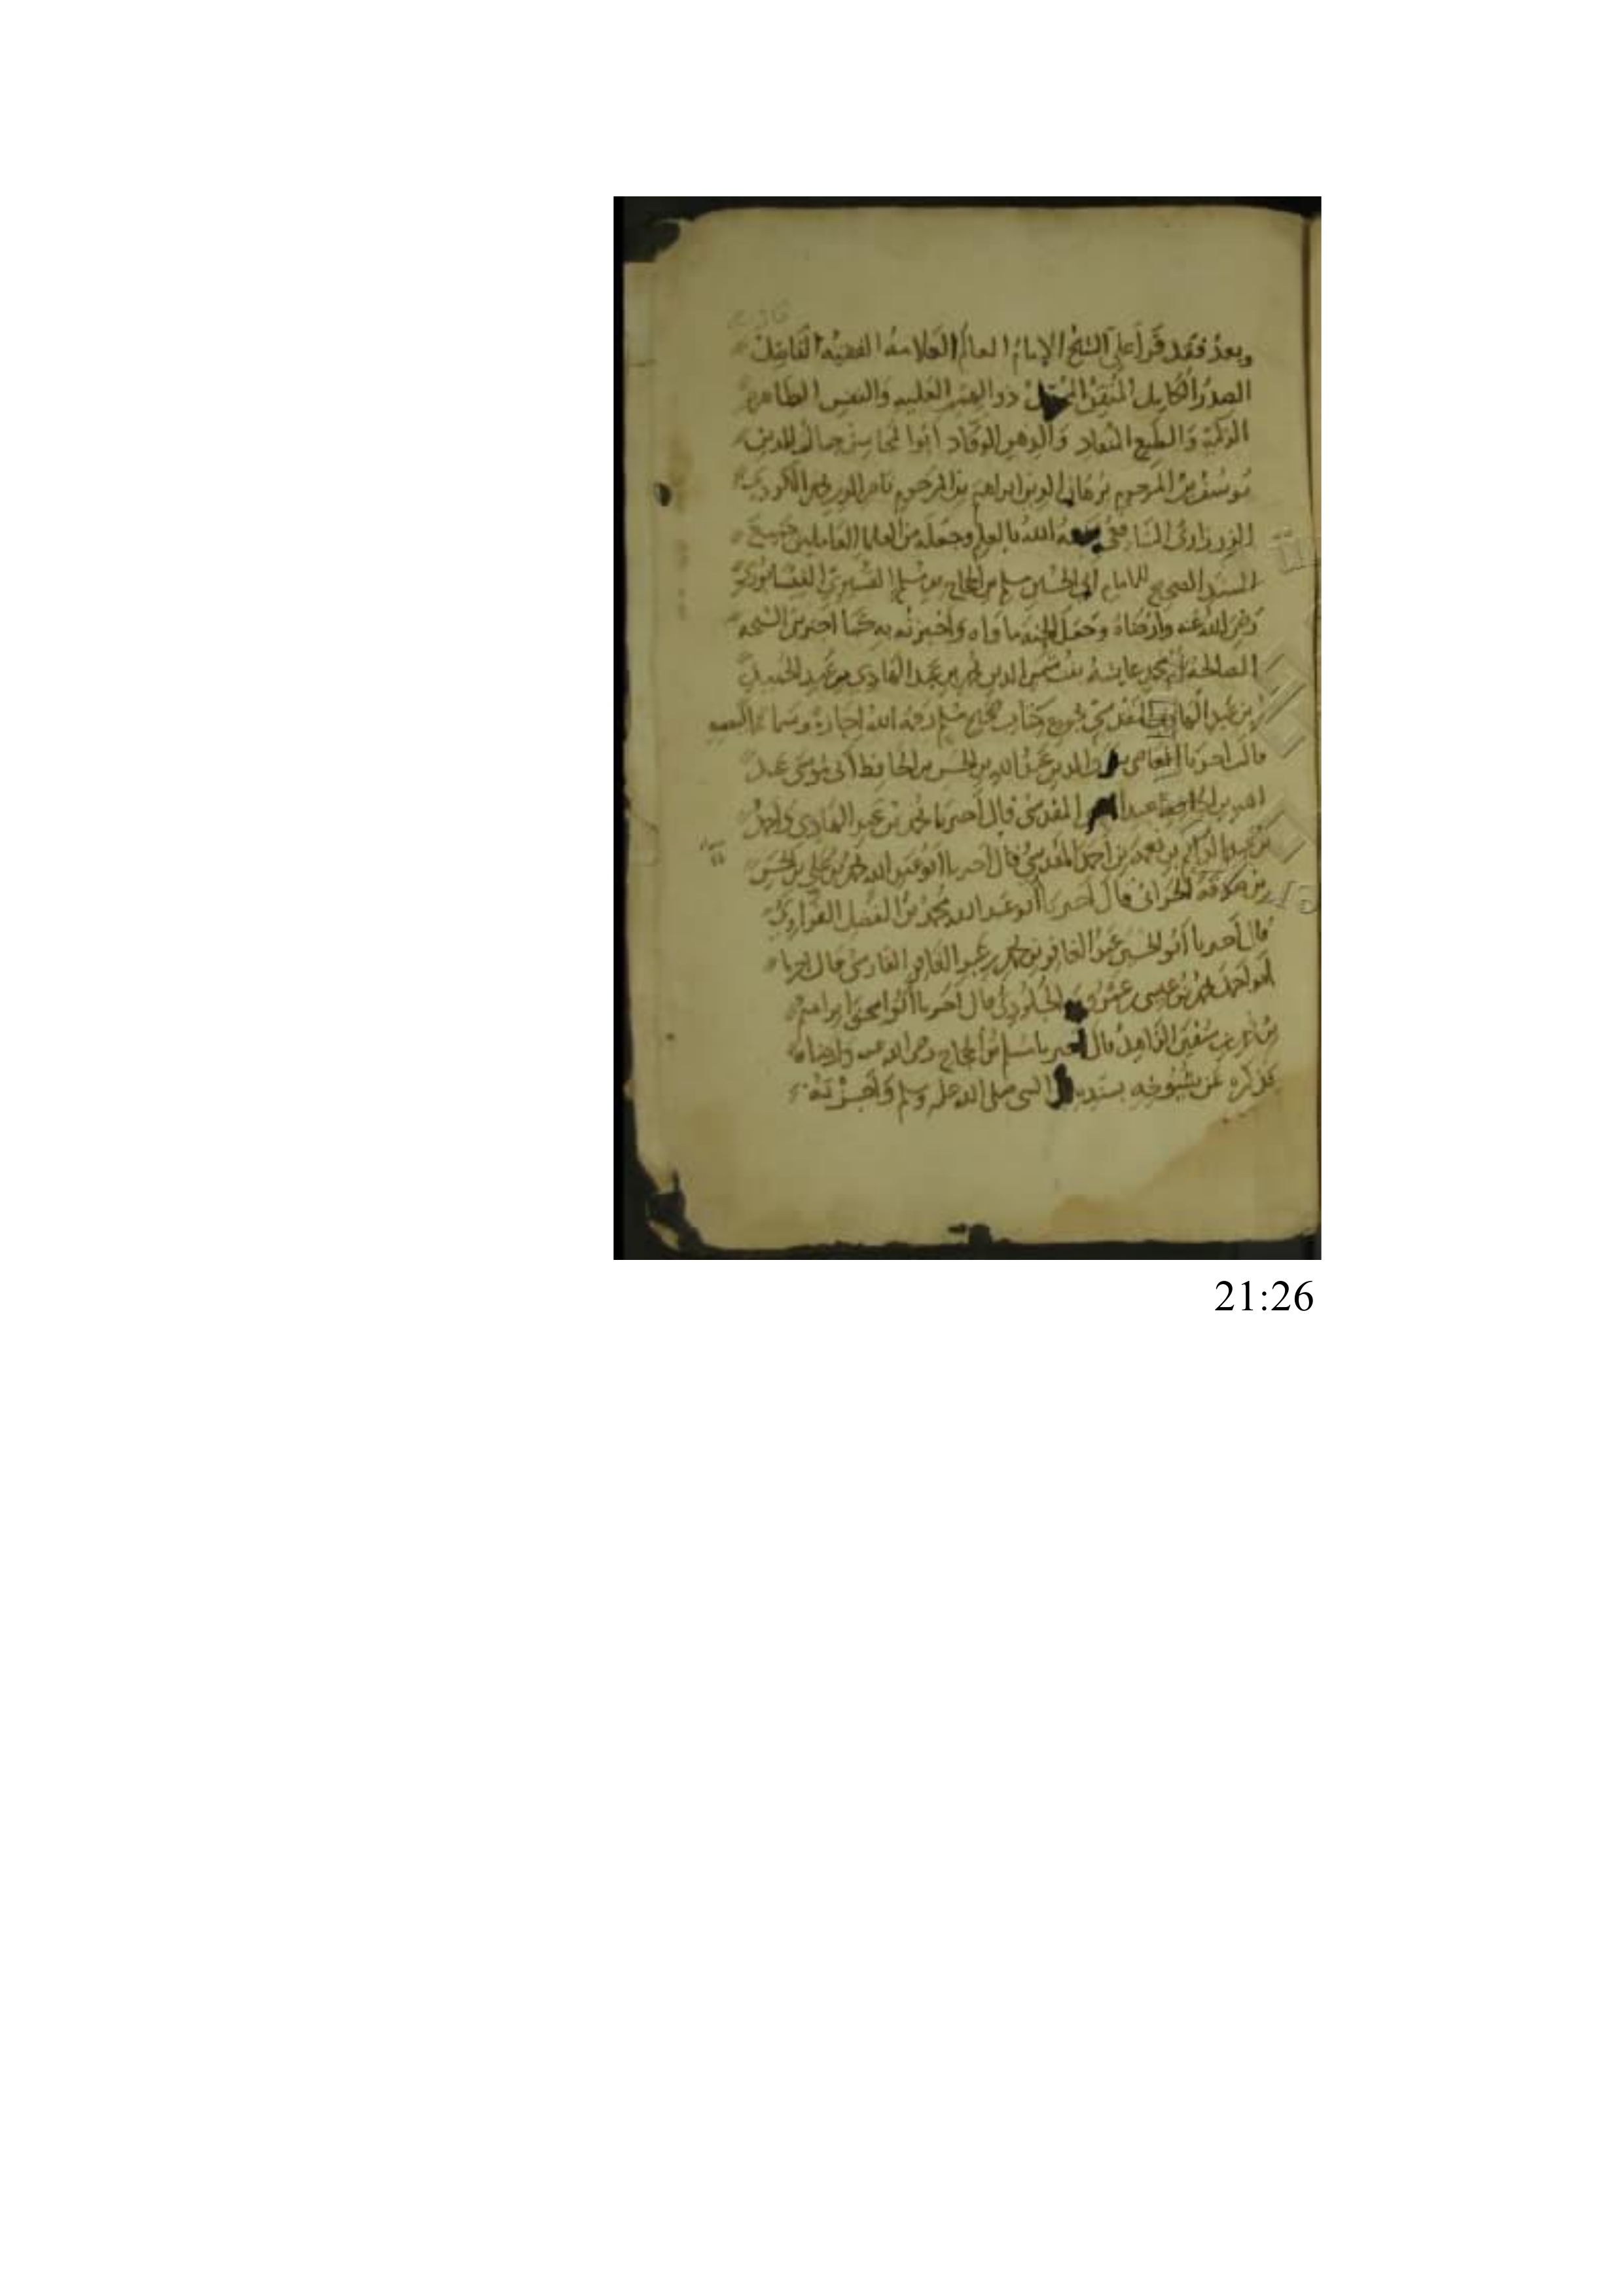 وبعد فقد قرأ علي الشيخ الإمام العالم العلامة الفقيه الفاضل
الصدر الكامل المتقن ذو الهمم العليه والنفس الطاهره
الزكية والطبع المنقاد والذهن الوقاد أبوا المحاسن جمال الدين
يوسف بن المرحوم برهان الدين ابراهيم بن المرحوم ناصر الدين محمد الكردي
الشافعي الله بالعلم وجعله من العلما العاملين جميع
المسند الصحيح للامام أبي الحسين مسلم بن الحجاج بن مسلم القشيري النيسابوري
رضي الله عنه وأرضاه وجعل الجنه ماواه وأخبرته به كما اخبرتني الشيخه
الصالحة أم محمد عايشة بنت شمس الدين محمد بن عبد الهادي بن عبد الحميد
بن عبد الهادي المقدسي بجميع كتاب صحيح مسلم رحمه الله اجازة وسماعا
قالت اخبرنا القاضي الدين عبد الله بن الحسن بن الحافظ أبي موسى عبد
الله بن الحافظ عبد المقدسي قال أخبرنا محمد بن عبد الهادي وأحمد
بن عبد الدايم بن نعمة بن أحمد المقدسي قال أخبرنا أبو عبد الله محمد بن علي بن الحسن
بن صدقة الحراني قال أخبرنا أبو عبد الله محمد بن الفضل الفراوي
قال أخبرنا أبو الحسين عبد الغافر بن محمد بن عبد الغافر الفارسي قال اخبرنا
أبو أحمد محمد بن عيسى بن عمرويه الجلودي قال أخبرنا أبو اسحق ابراهيم
بن محمد بن سفين الزاهد قال أخبرنا مسلم بن الحجاج رضي الله عنه وأرضاه
يذكره عن شيوخه بسنده النبي صلى الله عليه وسلم وأجزته
21:26